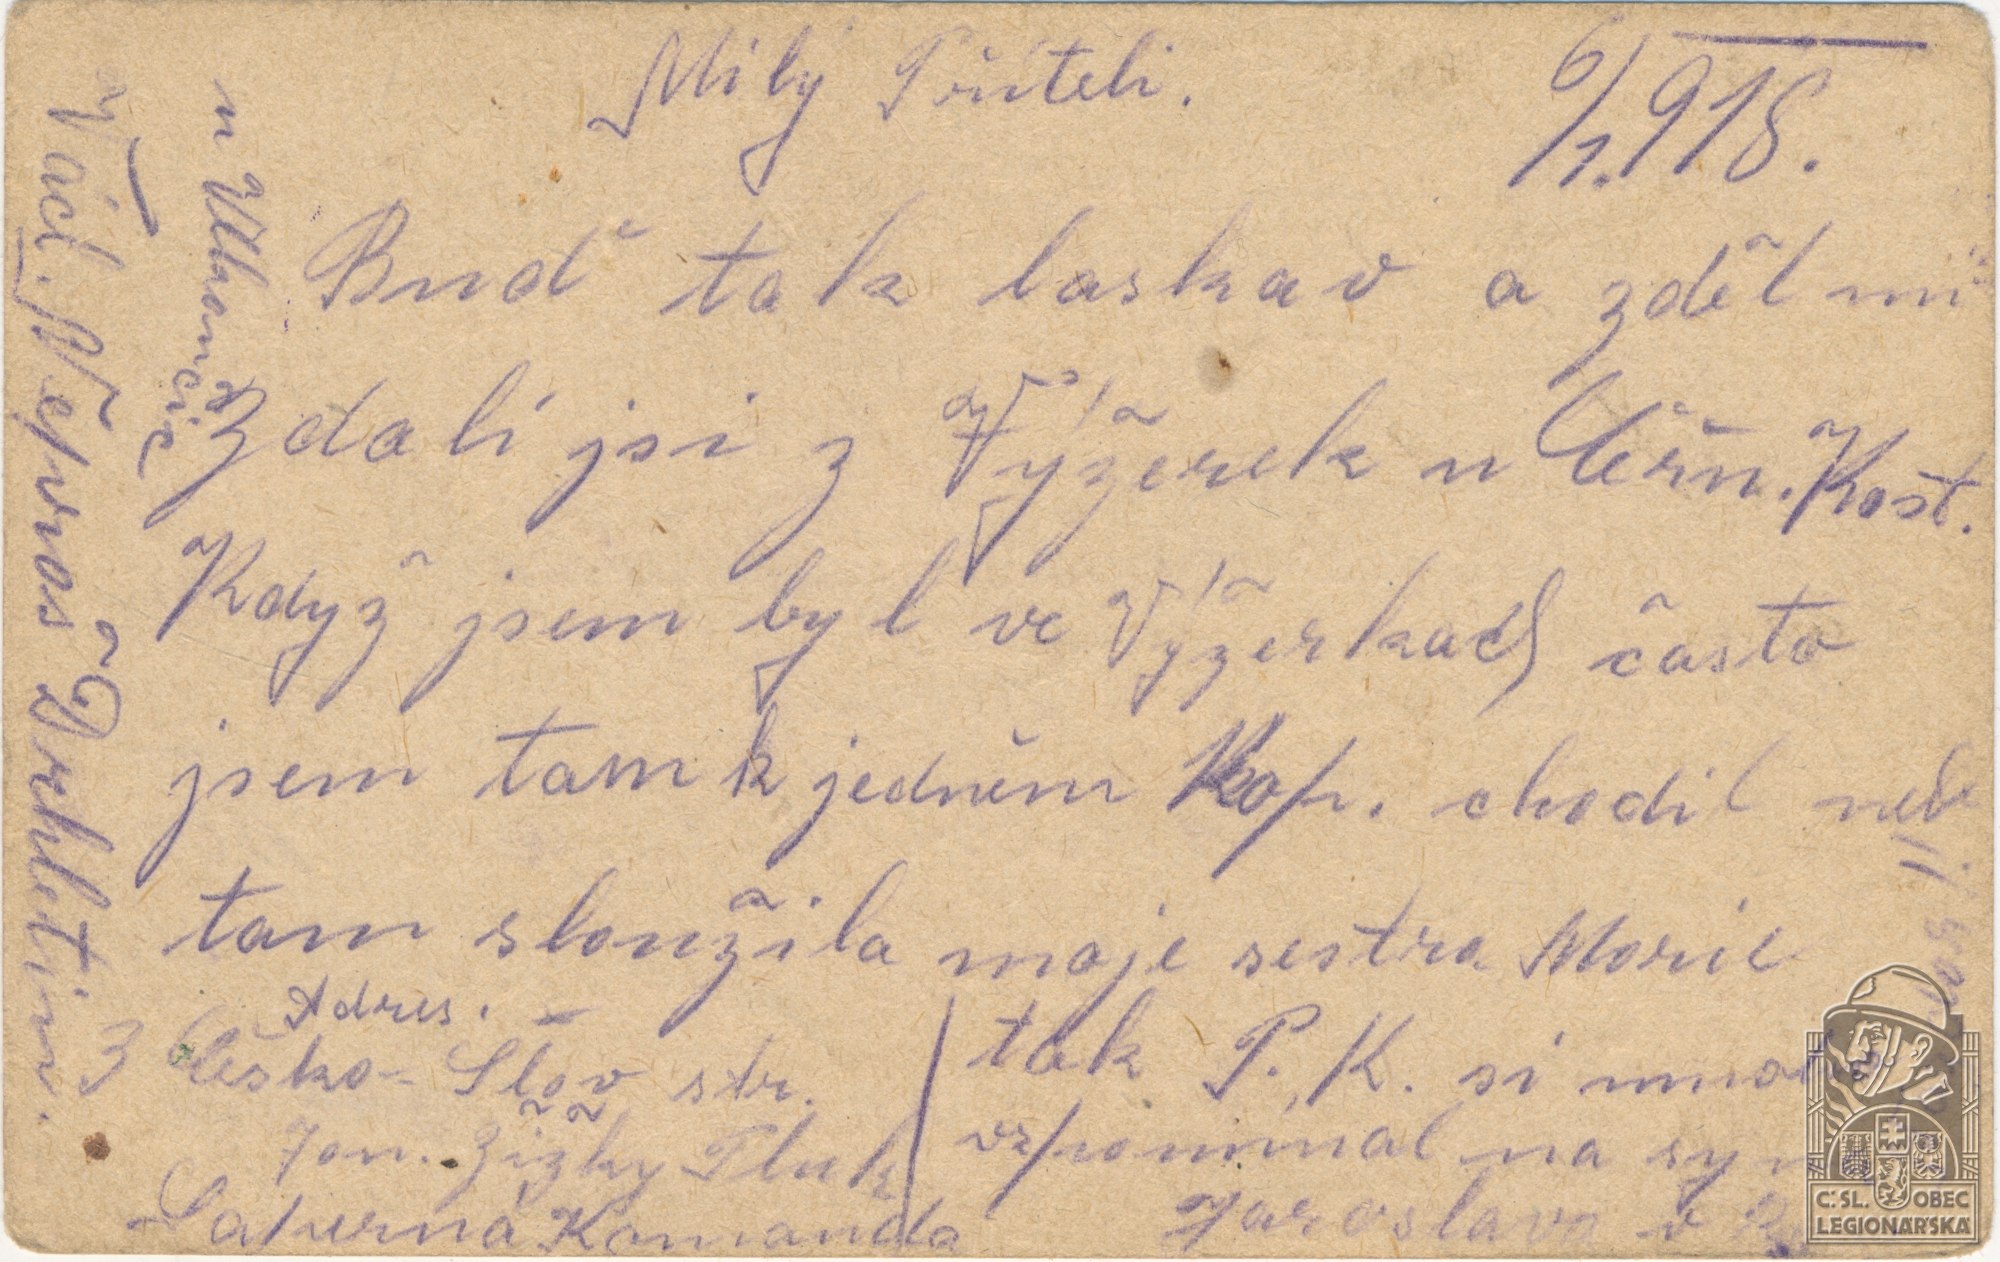 Milý Příteli.
6/1. 918.
Buď tak laskav a zděl mi
zdali jsi z Výžerek u Čern. Kost.
Když jsem byl ve Výžerkach často
jsem tam k jedněm Kop. chodil neb
tam sloužila moje sestra Marie
tak P. K. si
vzpomínal na
Jaroslava v
Adres. –
Česko-Slov str.
Jan. Žižky Pluk
Saperna Komanda
Václ. Nepraš z Drhletin.
C. SL. OBEC
LEGIONÁRSKÁ